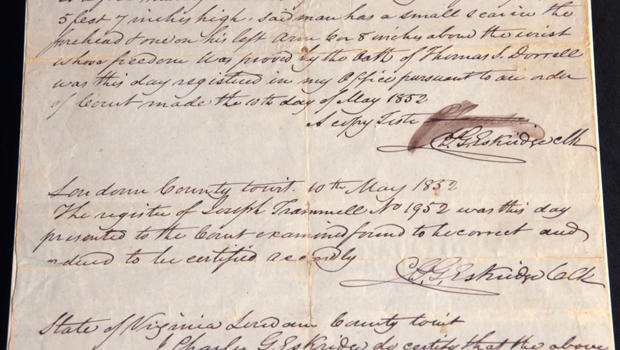 5 feet 7 inches high. Said man has a small scar in the
forehead & one on his left arm 6 or 8 inches above the wrist
whose freedom was proved by the Oath of Thomas S. Dorrell
was this day registered in my Office pursuant to an order
of Court made the 10th day of May 1852
A copy Teste
C. G. Eskridge Clk
Loudoun County towit. 10th May 1852
The register of Joseph Trammell No 1952 was this day
presented to the Court examined found to be correct and
ordered to be certified accordly
C. G. Eskridge Clk
State of Virginia Loudoun County towit
I Charles G. Eskridge do certify that the above